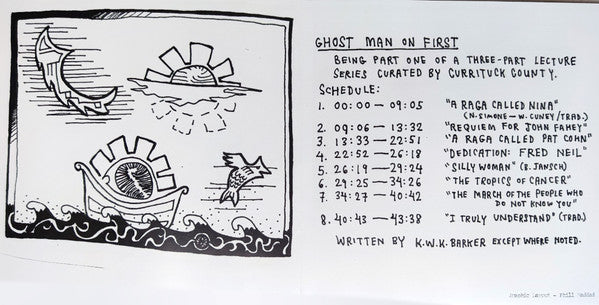 GHOST MAN ON FIRST
BEING PART ONE OF A THREE-PART LECTURE
SERIES CURATED BY CURRITUCK COUNTY.
SCHEDULE:
1. 00:00 — 09:05 "A RAGA CALLED NINA"
(N. SIMONE — W. CUNEY/TRAD.)
2. 09:06 — 13:32 "REQUIEM FOR JOHN FAHEY"
3. 13:33 — 22:51 "A RAGA CALLED PAT COHN"
4. 22:52 — 26:18 "DEDICATION: FRED NEIL"
5. 26:19 — 29:24 "SILLY WOMAN" (B. JANSCH)
6. 29:25 — 34:26 "THE TROPICS OF CANCER"
7. 34:27 — 40:42 "THE MARCH OF THE PEOPLE WHO
DO NOT KNOW YOU"
8. 40:43 — 43:38 "I TRULY UNDERSTAND" (TRAD.)
WRITTEN BY K.W.K. BARKER EXCEPT WHERE NOTED.
Graphic Layout - Phill